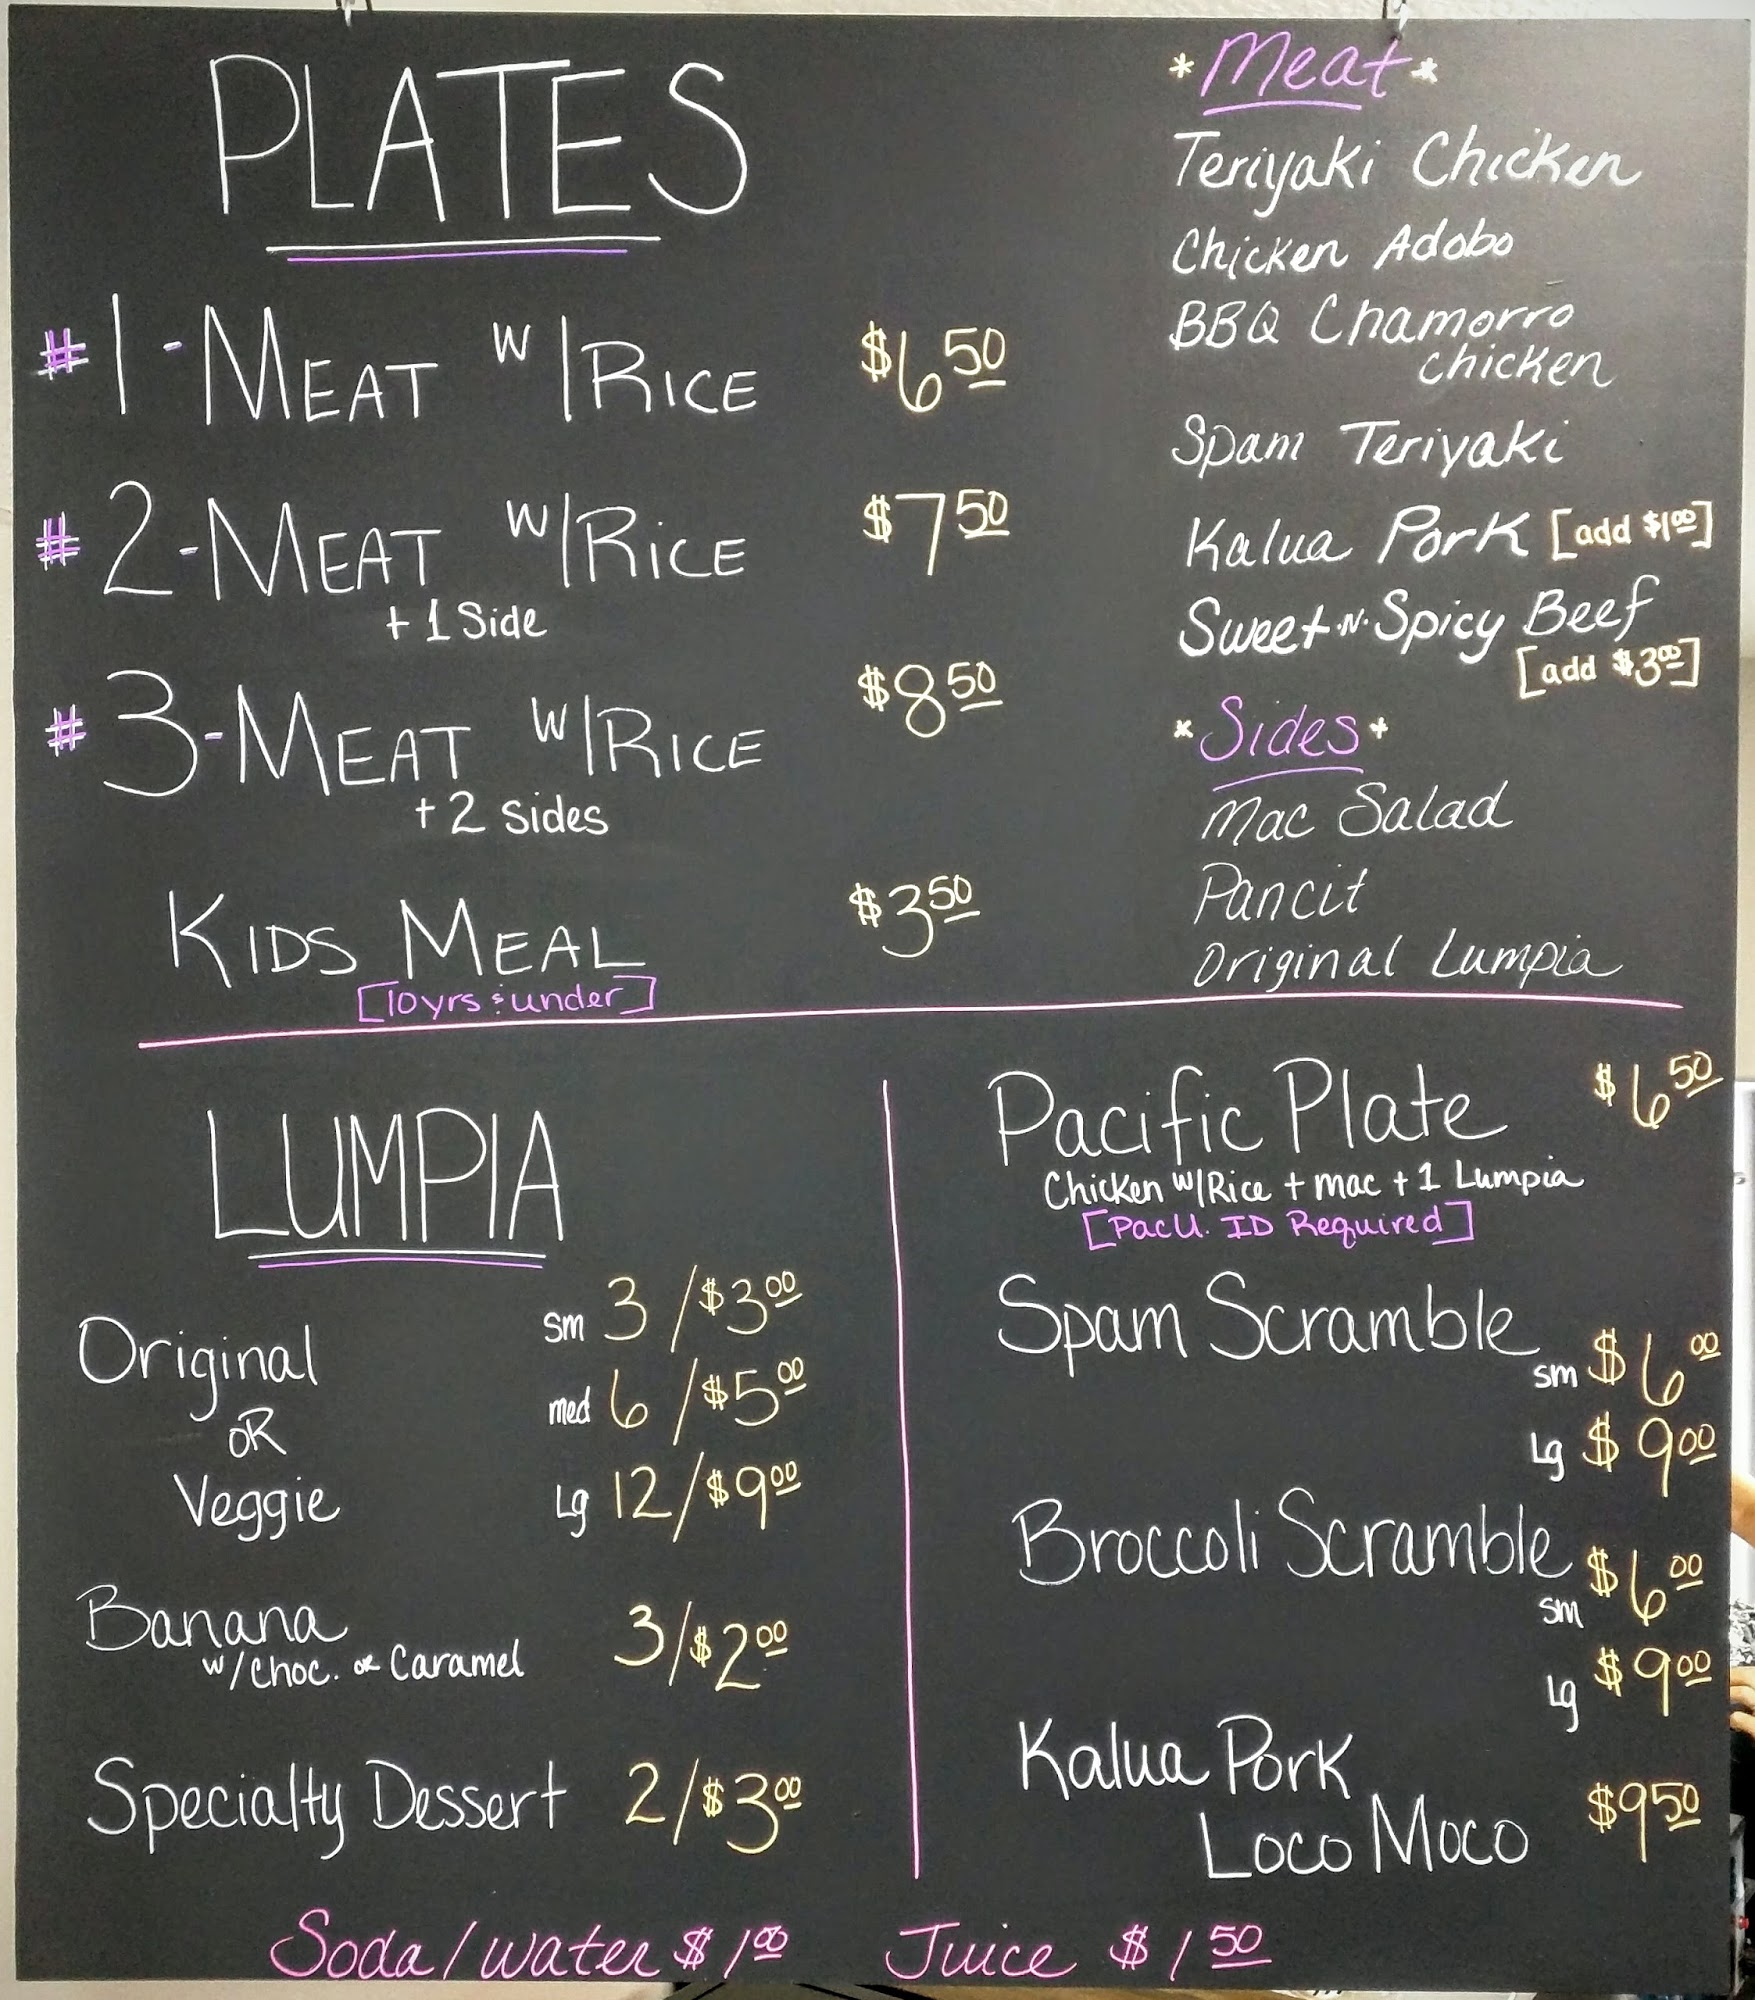 PLATES
#1-MEAT W/RICE $6.50
#2-MEAT W/RICE $7.50
+1 Side
#3-MEAT W/RICE $8.50
+2 Sides
KIDS MEAL $3.50
[10yrs & under]
*Meat*
Teriyaki Chicken
Chicken Adobo
BBQ Chamorro
chicken
Spam Teriyaki
Kalua Pork [add $1.00]
Sweet-N-Spicy Beef
[add $3.00]
*Sides*
Mac Salad
Pancit
Original Lumpia
LUMPIA
Original
OR
Veggie
sm 3/$3.00
med 6/$5.00
Lg 12/$9.00
Banana 3/$2.00
w/Choc. or Caramel
Specialty Dessert 2/$3.00
Pacific Plate $6.50
Chicken w/Rice + mac + 1 Lumpia
[PacU. ID Required]
Spam Scramble
sm $6.00
Lg $9.00
Broccoli Scramble
sm $6.00
Lg $9.00
Kalua Pork
Loco Moco $9.50
Soda/water $1.00 Juice $1.50